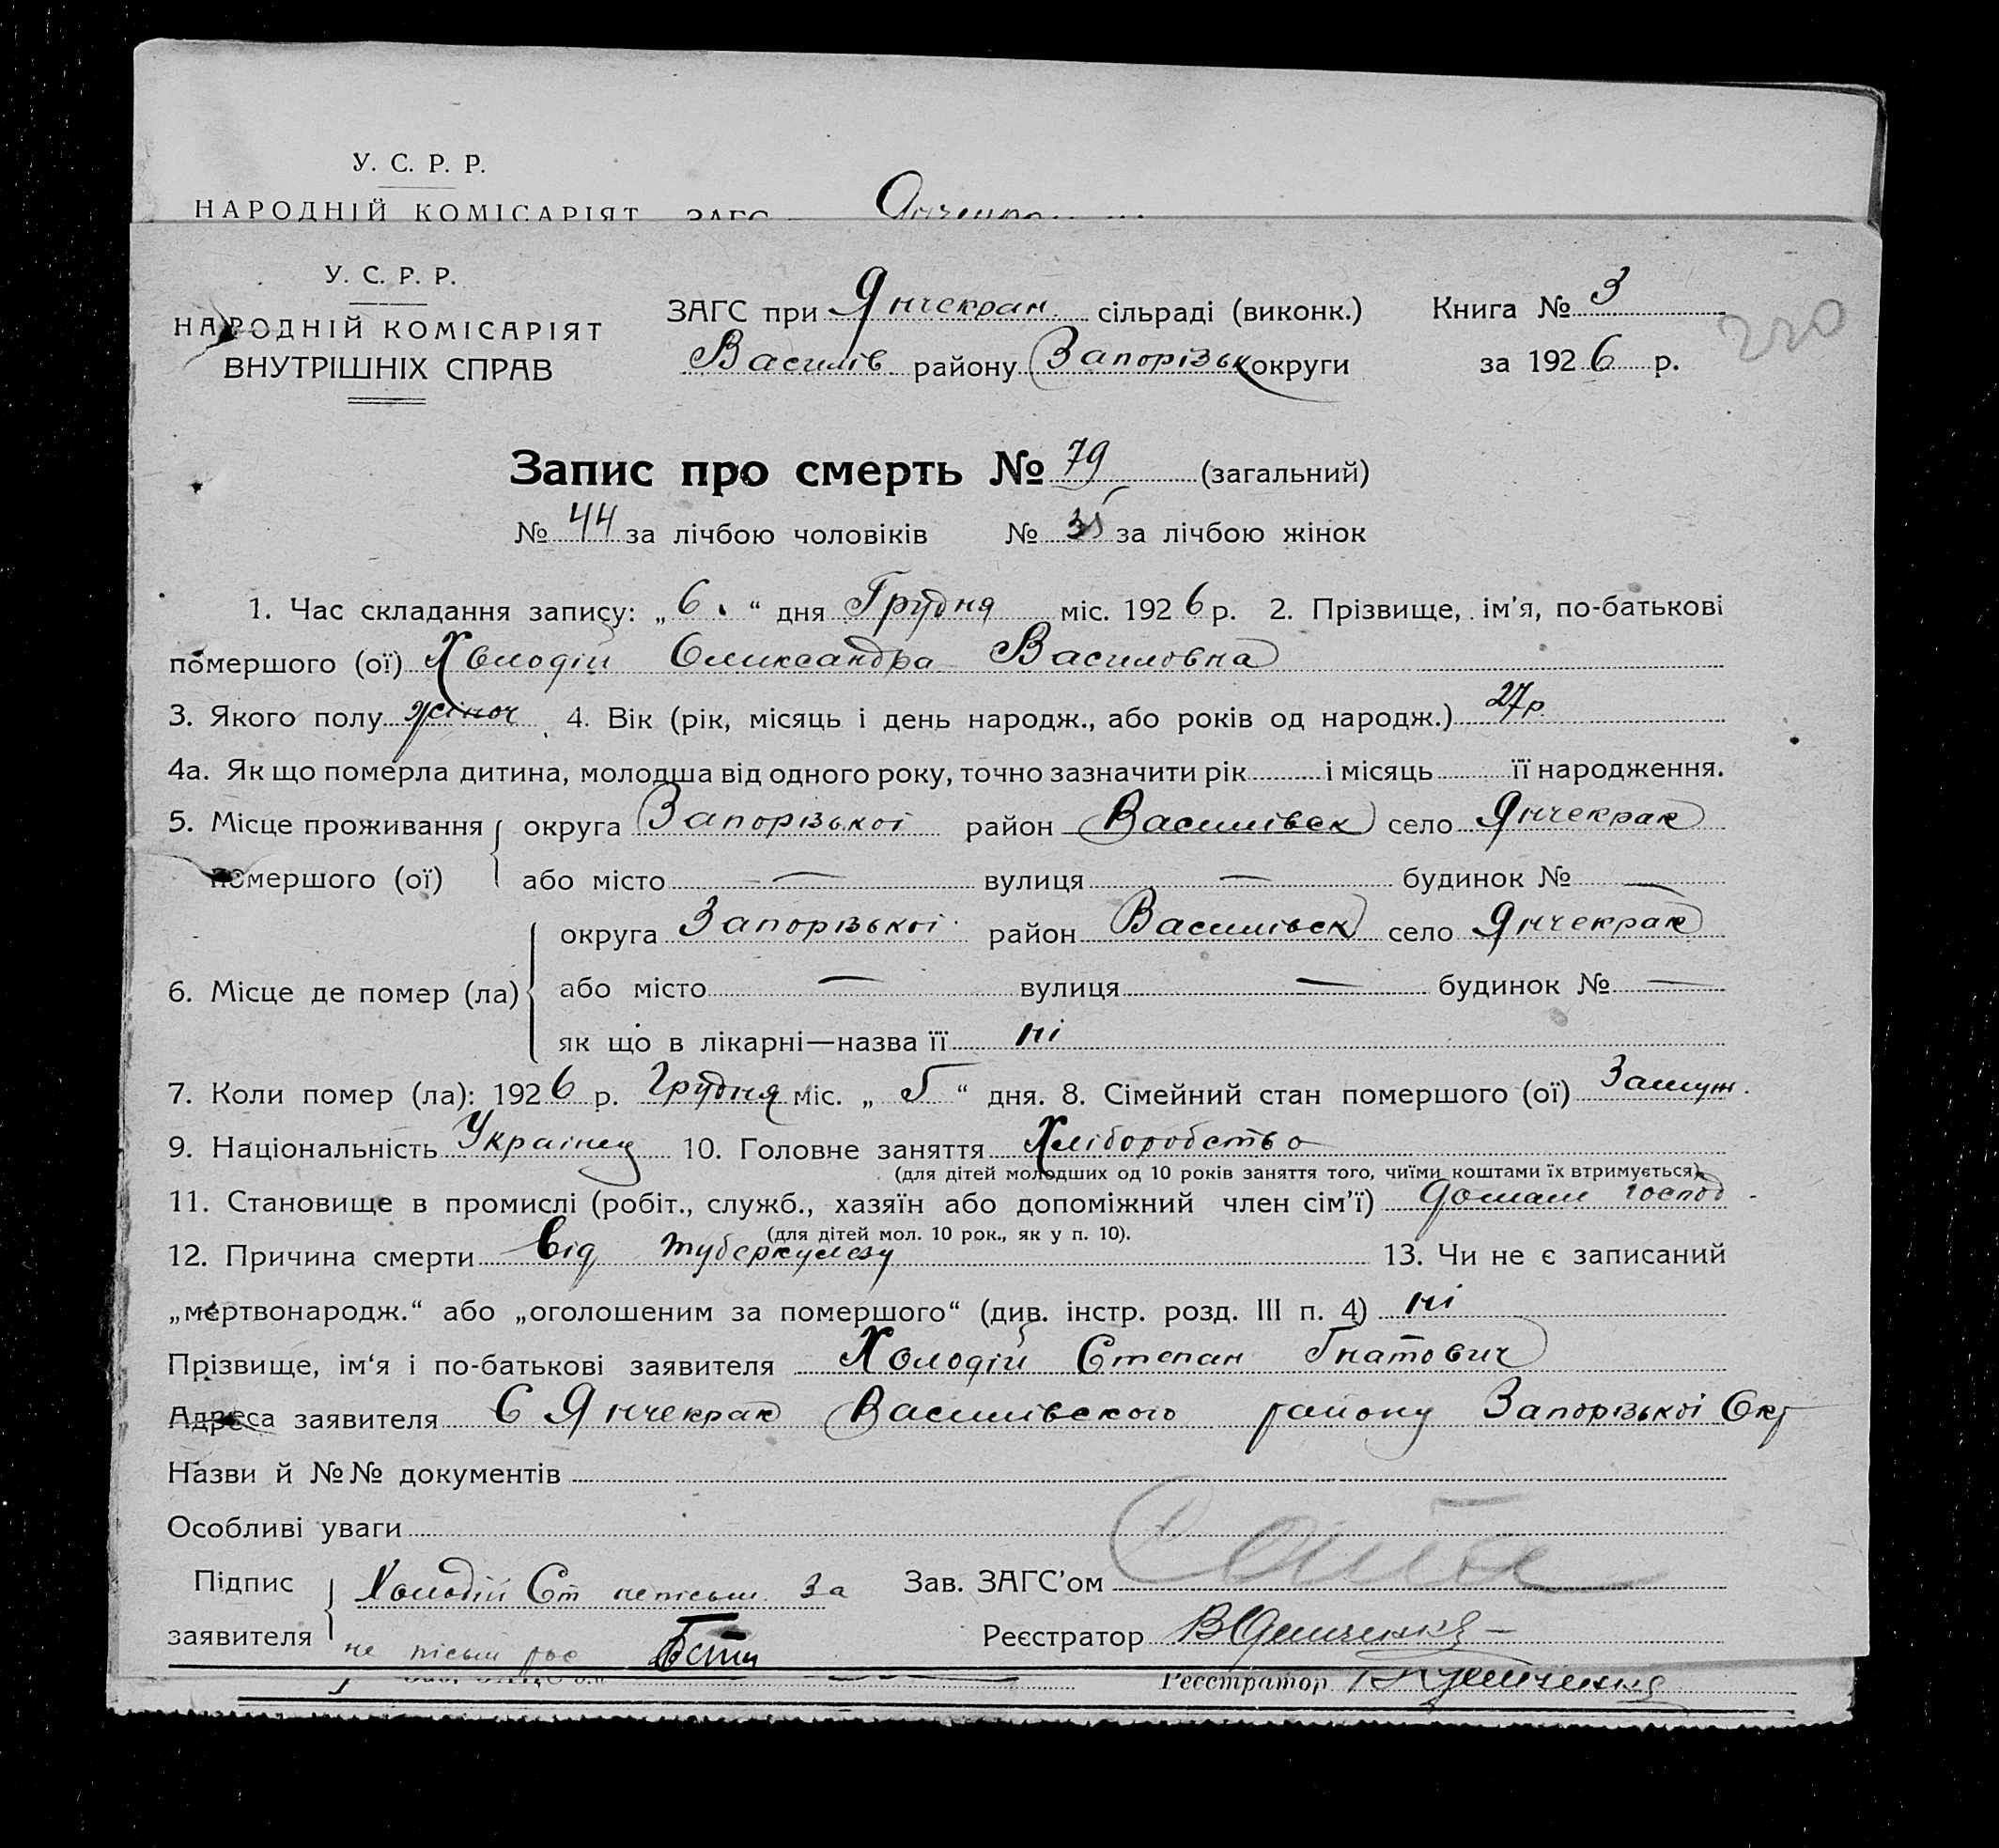 У. С. Р. Р.
НАРОДНІЙ КОМІСАРІЯТ ЗАГС
У. С. Р. Р.
НАРОДНІЙ КОМІСАРІЯТ
ВНУТРІШНІХ СПРАВ
ЗАГС при Янчекрак сільраді (виконк.) Книга № 3
Василів району Запорізьк округи за 1926 р.
220
Запис про смерть № 79 (загальний)
№ 44 за лічбою чоловіків № 35 за лічбою жінок
1. Час складання запису: „6." дня Грудня міс. 1926 р. 2. Прізвище, ім'я, по-батькові
помершого (ої) Холодій Олександра Василовна
3. Якого полу жіноч 4. Вік (рік, місяць і день народж., або років од народж.) 27 р.
4а. Як що померла дитина, молодша від одного року, точно зазначити рік і місяць її народження.
5. Місце проживання помершого (ої) округа Запорізької район Василівск село Янчекрак
або місто — вулиця — будинок № —
6. Місце де помер (ла) округа Запорізької район Василівск село Янчекрак
або місто — вулиця — будинок № —
як що в лікарні—назва її ні
7. Коли помер (ла): 1926 р. Грудня міс. „5" дня. 8. Сімейний стан помершого (ої) Замуж.
9. Національність Українц 10. Головне заняття Хліборобство
(для дітей молодших од 10 років заняття того, чиїми коштами їх втримується)
11. Становище в промислі (робіт., служб., хазяїн або допоміжний член сім'ї) домаш господ
(для дітей мол. 10 рок., як у п. 10).
12. Причина смерти Від туберкулезу 13. Чи не є записаний
„мертвонародж." або „оголошеним за помершого" (див. інстр. розд. III п. 4) ні
Прізвище, ім'я і по-батькові заявителя Холодій Степан Гнатович
Адреса заявителя С Янчекрак Василівского району Запорізької Окр
Назви й №№ документів
Особливі уваги
Підпис заявителя Холодій Ст непісьм за
не пісьм рос
Зав. ЗАГС'ом
Реєстратор
Реєстратор